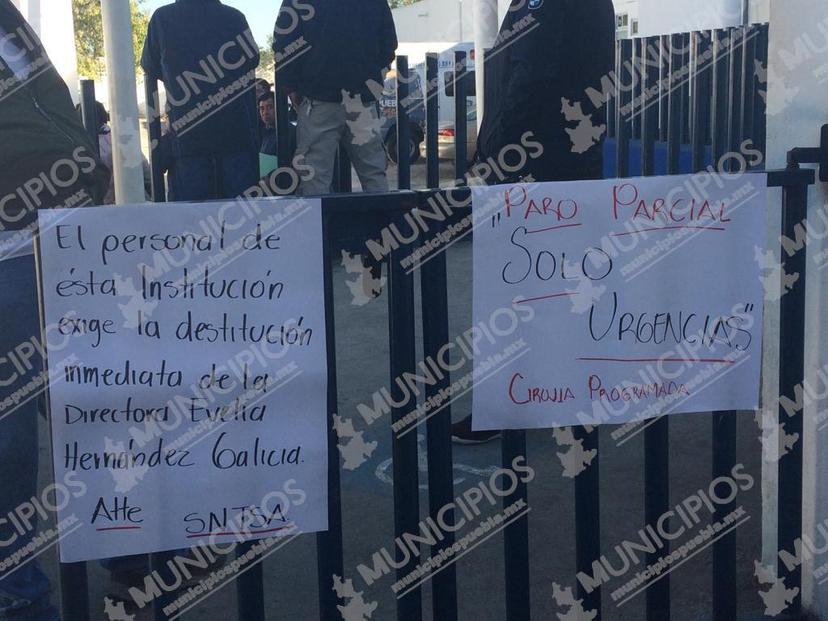 El personal de
ésta Institución
exige la destitución
inmediata de la
Directora Evelia
Hernández Galicia.
Atte SNTSA
"PARO PARCIAL
SOLO
URGENCIAS"
CIRUJIA PROGRAMADA
MUNICIPIOS
municipiospuebla.mx